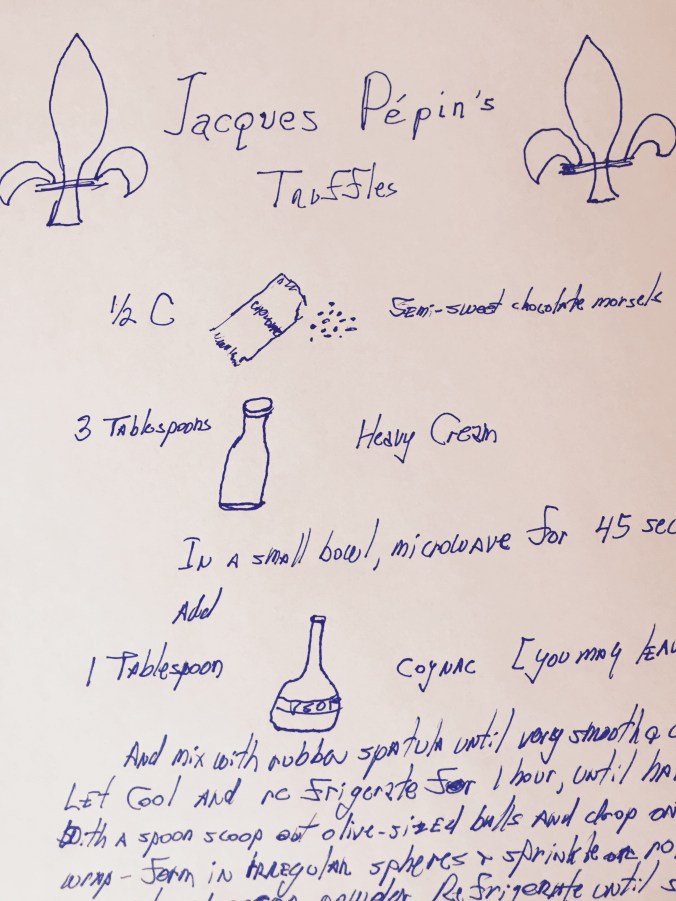 Jacques Pépin's
Truffles
1/2 C Semi-sweet chocolate morsels
3 Tablespoons Heavy Cream
In a small bowl, microwave for 45 sec
Add
1 Tablespoon VSOP Cognac [you may
And mix with rubber spatula until very smooth &
Let Cool and refrigerate for 1 hour, until
With a spoon scoop out olive-sized balls and drop on
wrap - form in irregular spheres & sprinkle or
powder. Refrigerate until